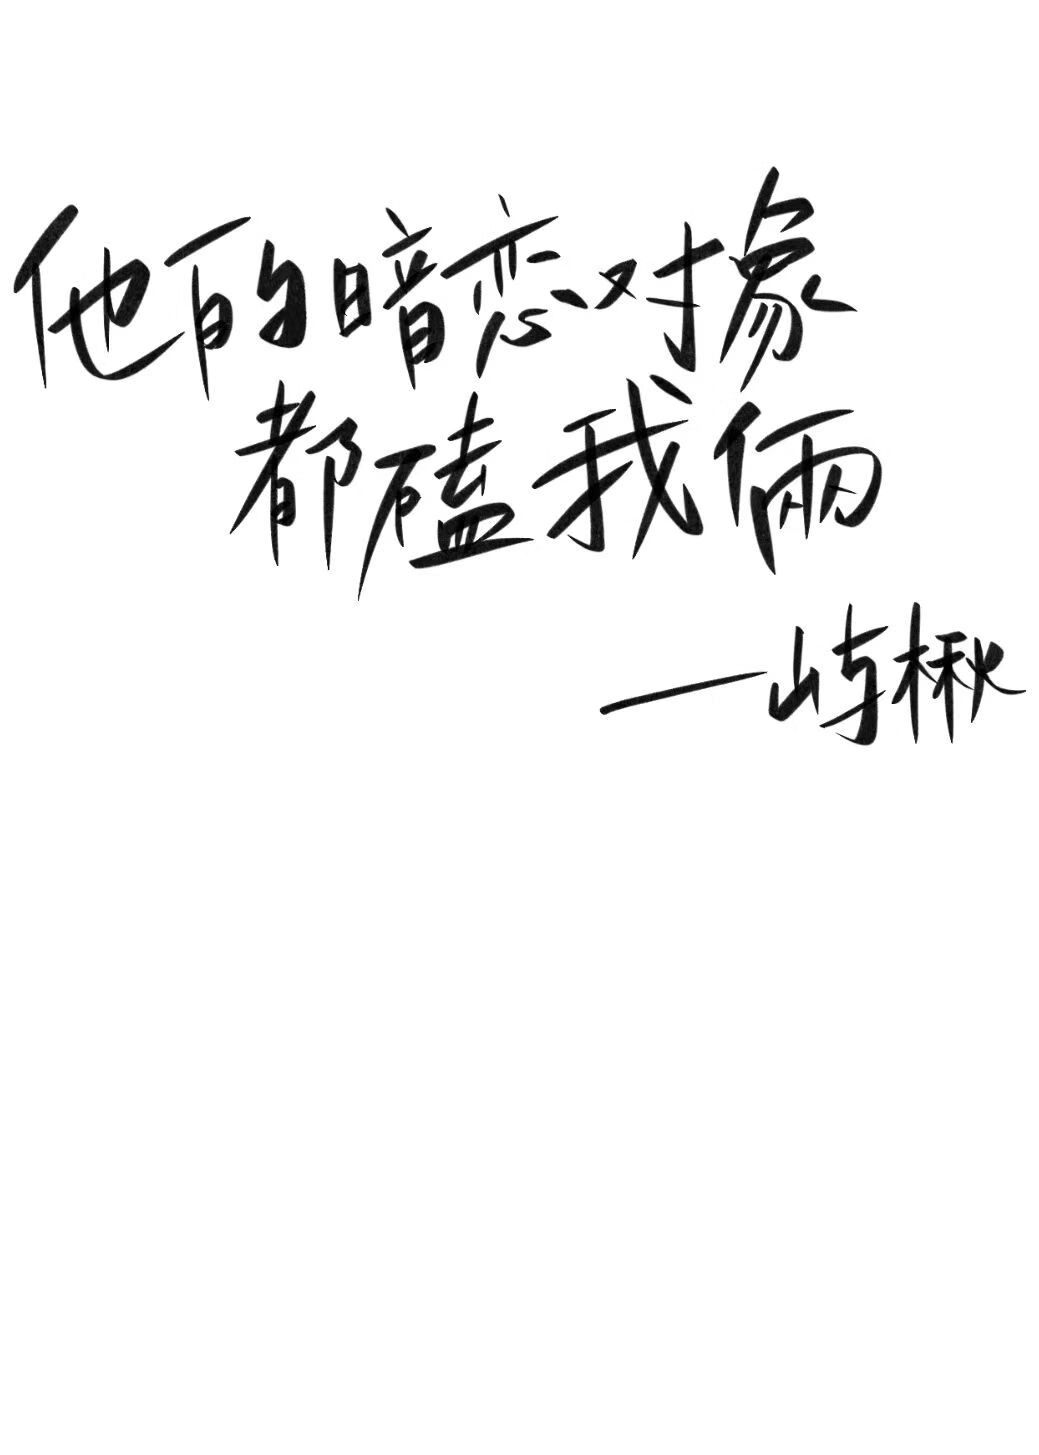 他的暗恋对象
都磕我俩
—屿楸